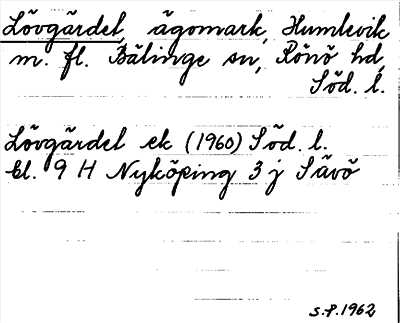 Lövgärdet, ägomark, Humlevik
m. fl. Bälinge sn, Rönö hd,
Söd. l.
Lövgärdet ek (1960) Söd. l.
bl. 9 H Nyköping 3 j Sävö
S.P. 1962